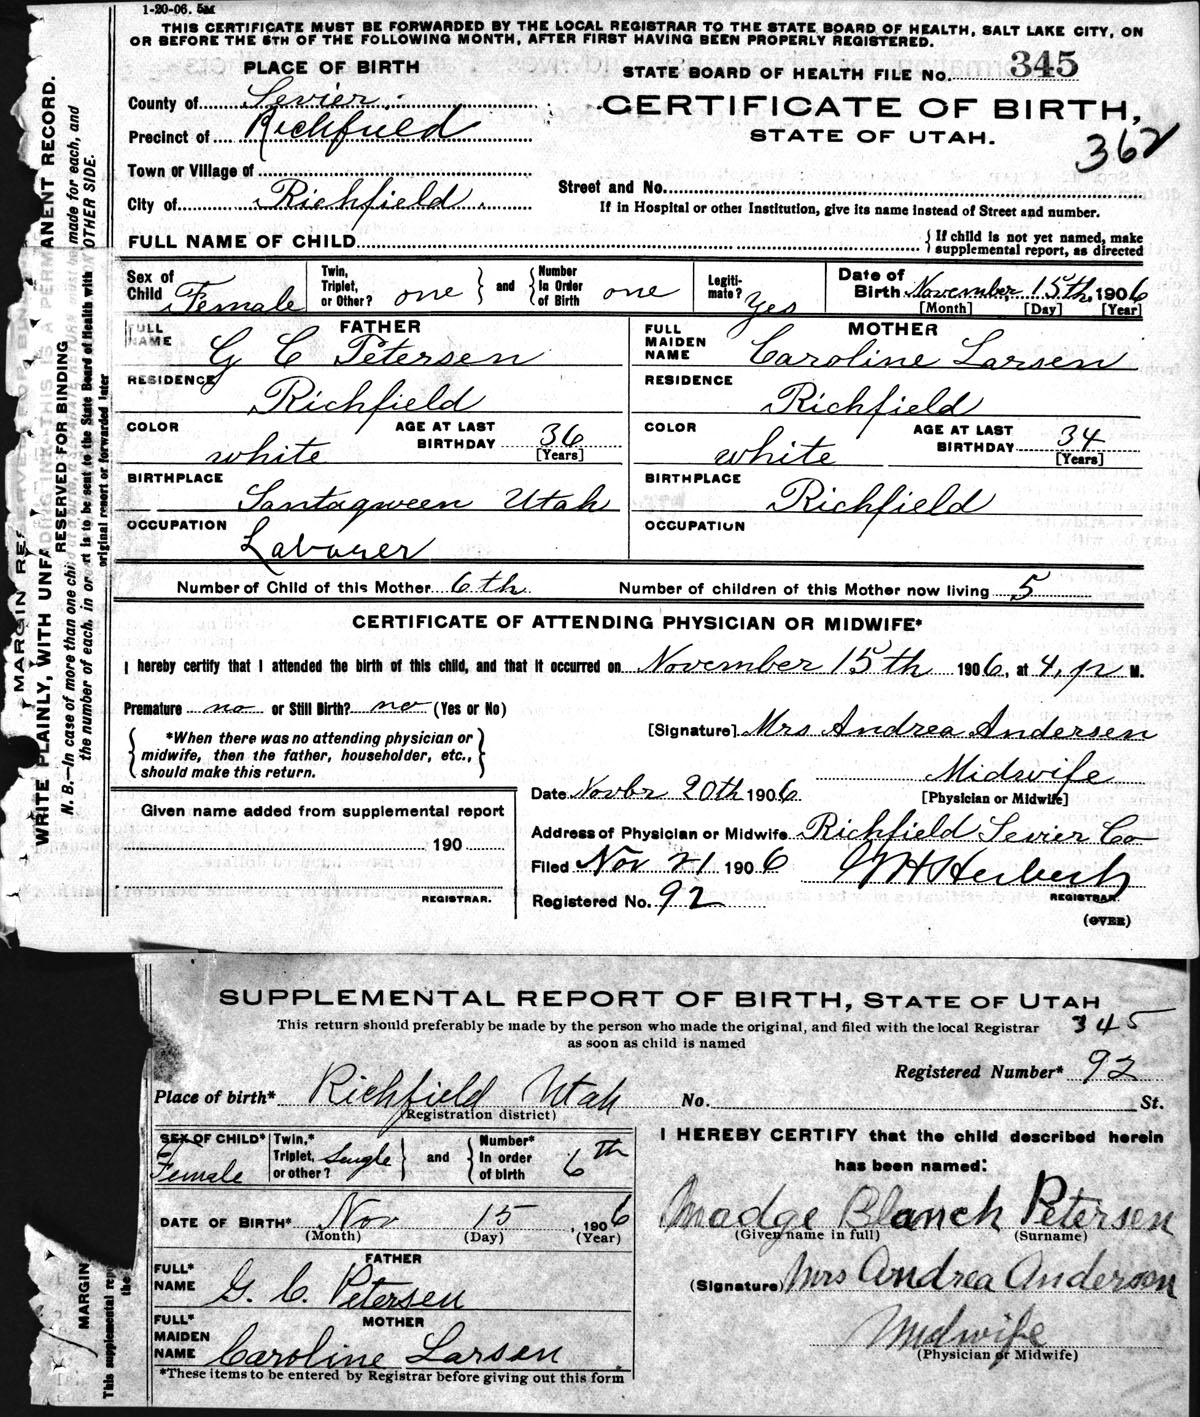 1-20-06. 5M
THIS CERTIFICATE MUST BE FORWARDED BY THE LOCAL REGISTRAR TO THE STATE BOARD OF HEALTH, SALT LAKE CITY, ON
OR BEFORE THE 5TH OF THE FOLLOWING MONTH, AFTER FIRST HAVING BEEN PROPERLY REGISTERED.
PLACE OF BIRTH
County of Sevier
Precinct of Richfield
Town or Village of
City of Richfield
STATE BOARD OF HEALTH FILE No. 345
CERTIFICATE OF BIRTH,
STATE OF UTAH.
362
Street and No.
If in Hospital or other Institution, give its name instead of Street and number.
FULL NAME OF CHILD
{If child is not yet named, make
supplemental report, as directed
Sex of Child Female
Twin, Triplet, or Other? one } and { Number In Order of Birth one
Legiti-mate? Yes
Date of Birth November 15th, 1906
[Month] [Day] [Year]
FATHER
FULL NAME G C Petersen
RESIDENCE Richfield
COLOR white
AGE AT LAST BIRTHDAY 36
[Years]
BIRTHPLACE Santaqween Utah
OCCUPATION Laborer
MOTHER
FULL MAIDEN NAME Caroline Larsen
RESIDENCE Richfield
COLOR white
AGE AT LAST BIRTHDAY 34
[Years]
BIRTHPLACE Richfield
OCCUPATION
Number of Child of this Mother 6th Number of children of this Mother now living 5
CERTIFICATE OF ATTENDING PHYSICIAN OR MIDWIFE*
I hereby certify that I attended the birth of this child, and that it occurred on November 15th 1906, at 4, p M.
Premature no or Still Birth? no (Yes or No)
*When there was no attending physician or
midwife, then the father, householder, etc.,
should make this return.
[Signature] Mrs Andrea Andersen
Midwife
[Physician or Midwife]
Date Novbr 20th 1906
Address of Physician or Midwife Richfield Sevier Co
Filed Nov 21 1906
REGISTRAR.
Registered No. 92
(OVER)
Given name added from supplemental report
190
REGISTRAR.
WRITE PLAINLY, WITH
RESERVED FOR BINDING
N. B.—In case of more than one
made for each, and
the number of each, in or
to be sent to the State Board of Health with
OTHER SIDE.
original report or forwarded later
SUPPLEMENTAL REPORT OF BIRTH, STATE OF UTAH
This return should preferably be made by the person who made the original, and filed with the local Registrar
as soon as child is named
345
Registered Number* 92
Place of birth* Richfield Utah No. St.
(Registration district)
SEX OF CHILD* Female
Twin,* Triplet, or other? Single } and { Number* In order of birth 6th
DATE OF BIRTH* Nov 15, 1906
(Month) (Day) (Year)
FATHER
FULL* NAME G. C. Petersen
MOTHER
FULL* MAIDEN NAME Caroline Larsen
*These items to be entered by Registrar before giving out this form
I HEREBY CERTIFY that the child described herein
has been named:
Madge Blanch Petersen
(Given name in full) (Surname)
(Signature) Mrs Andrea Anderson
Midwife
(Physician or Midwife)
MARGIN
This supplemental rep
the